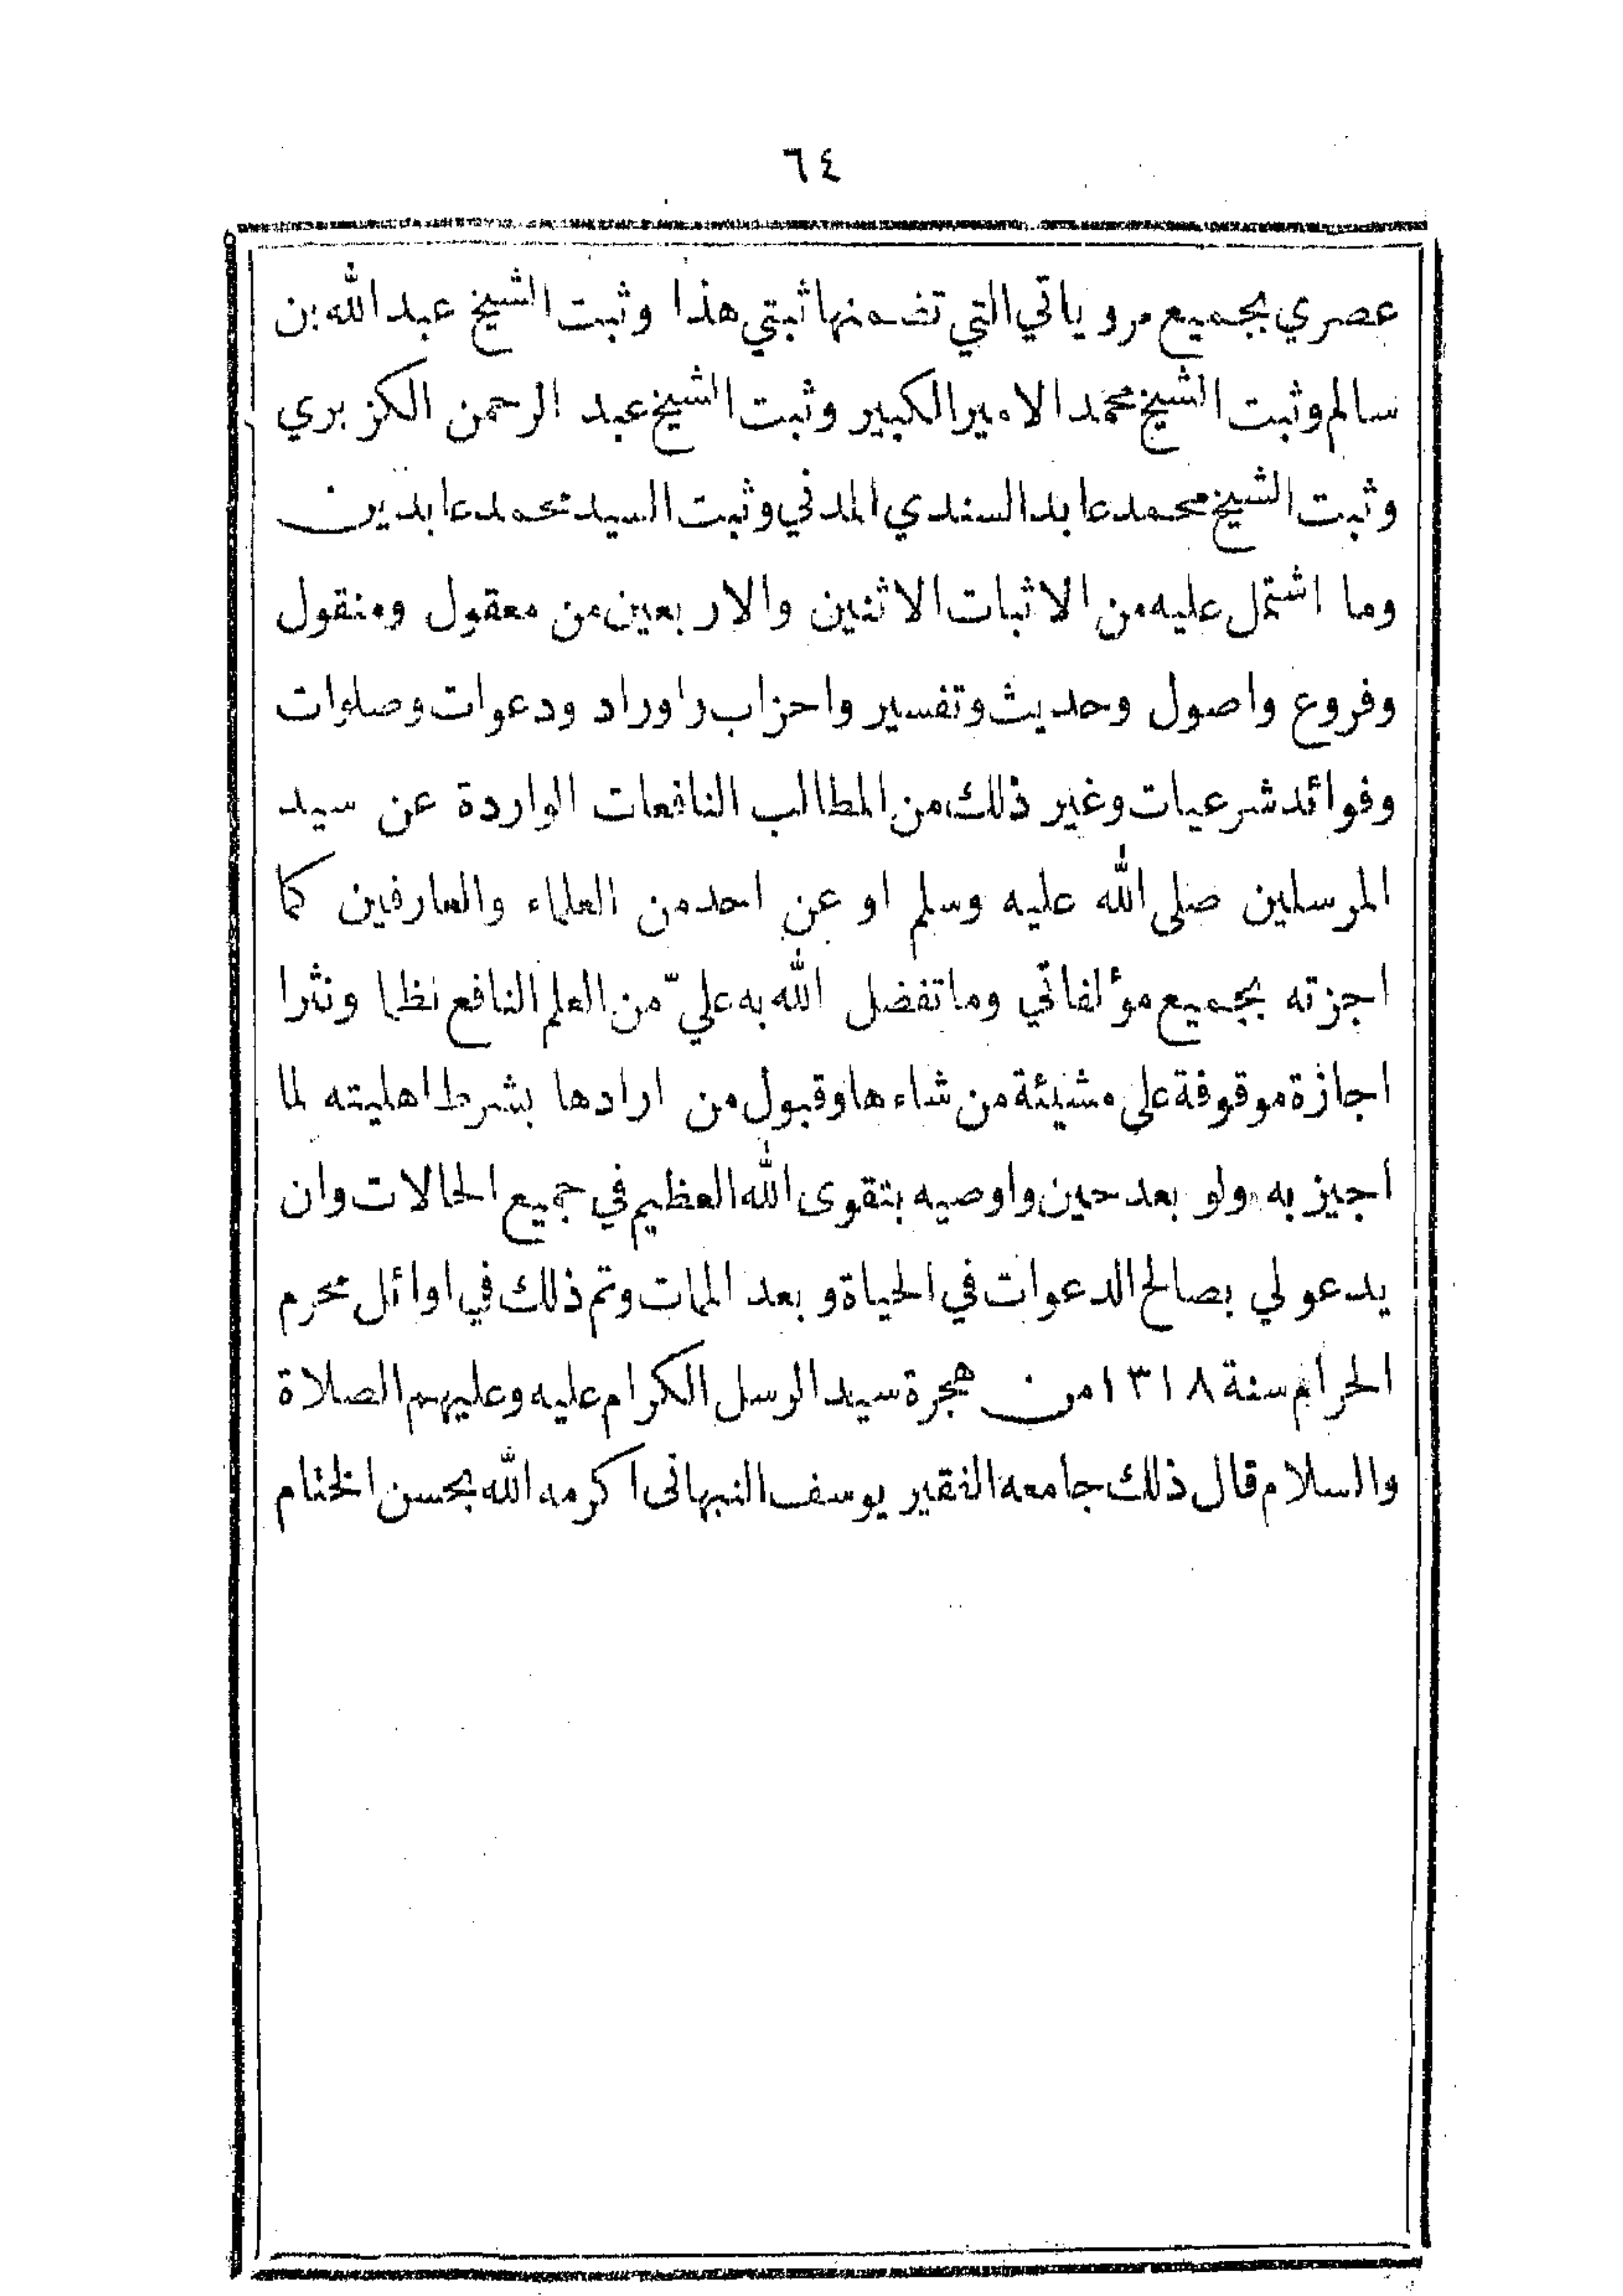 ٦٤
عصري بجميع مروياتي التي تضمنها ثبتي هذا وثبت الشيخ عبد الله بن
سالم وثبت الشيخ محمد الامير الكبير وثبت الشيخ عبد الرحمن الكزبري
وثبت الشيخ محمد عابد السندي المدني وثبت السيد محمد عابدين
وما اشتمل عليه من الاثبات الاثنين والاربعين من معقول ومنقول
وفروع واصول وحديث وتفسير واحزاب واوراد ودعوات وصلوات
وفوائد شرعيات وغير ذلك من المطالب النافعات الواردة عن سيد
المرسلين صلى الله عليه وسلم او عن احد من العلماء والعارفين كما
اجزته بجميع مؤلفاتي وما تفضل الله به عليّ من العلم النافع نظما ونثرا
اجازة موقوفة على مشيئة من شاءها وقبول من ارادها بشرط اهليته لما
اجيز به ولو بعد حين واوصيه بتقوى الله العظيم في جميع الحالات وان
يدعو لي بصالح الدعوات في الحياة وبعد الممات وتم ذلك في اوائل محرم
الحرام سنة ١٣١٨ من هجرة سيد الرسل الكرام عليه وعليهم الصلاة
والسلام قال ذلك جامعه الفقير يوسف النبهانى اكرمه الله بحسن الختام